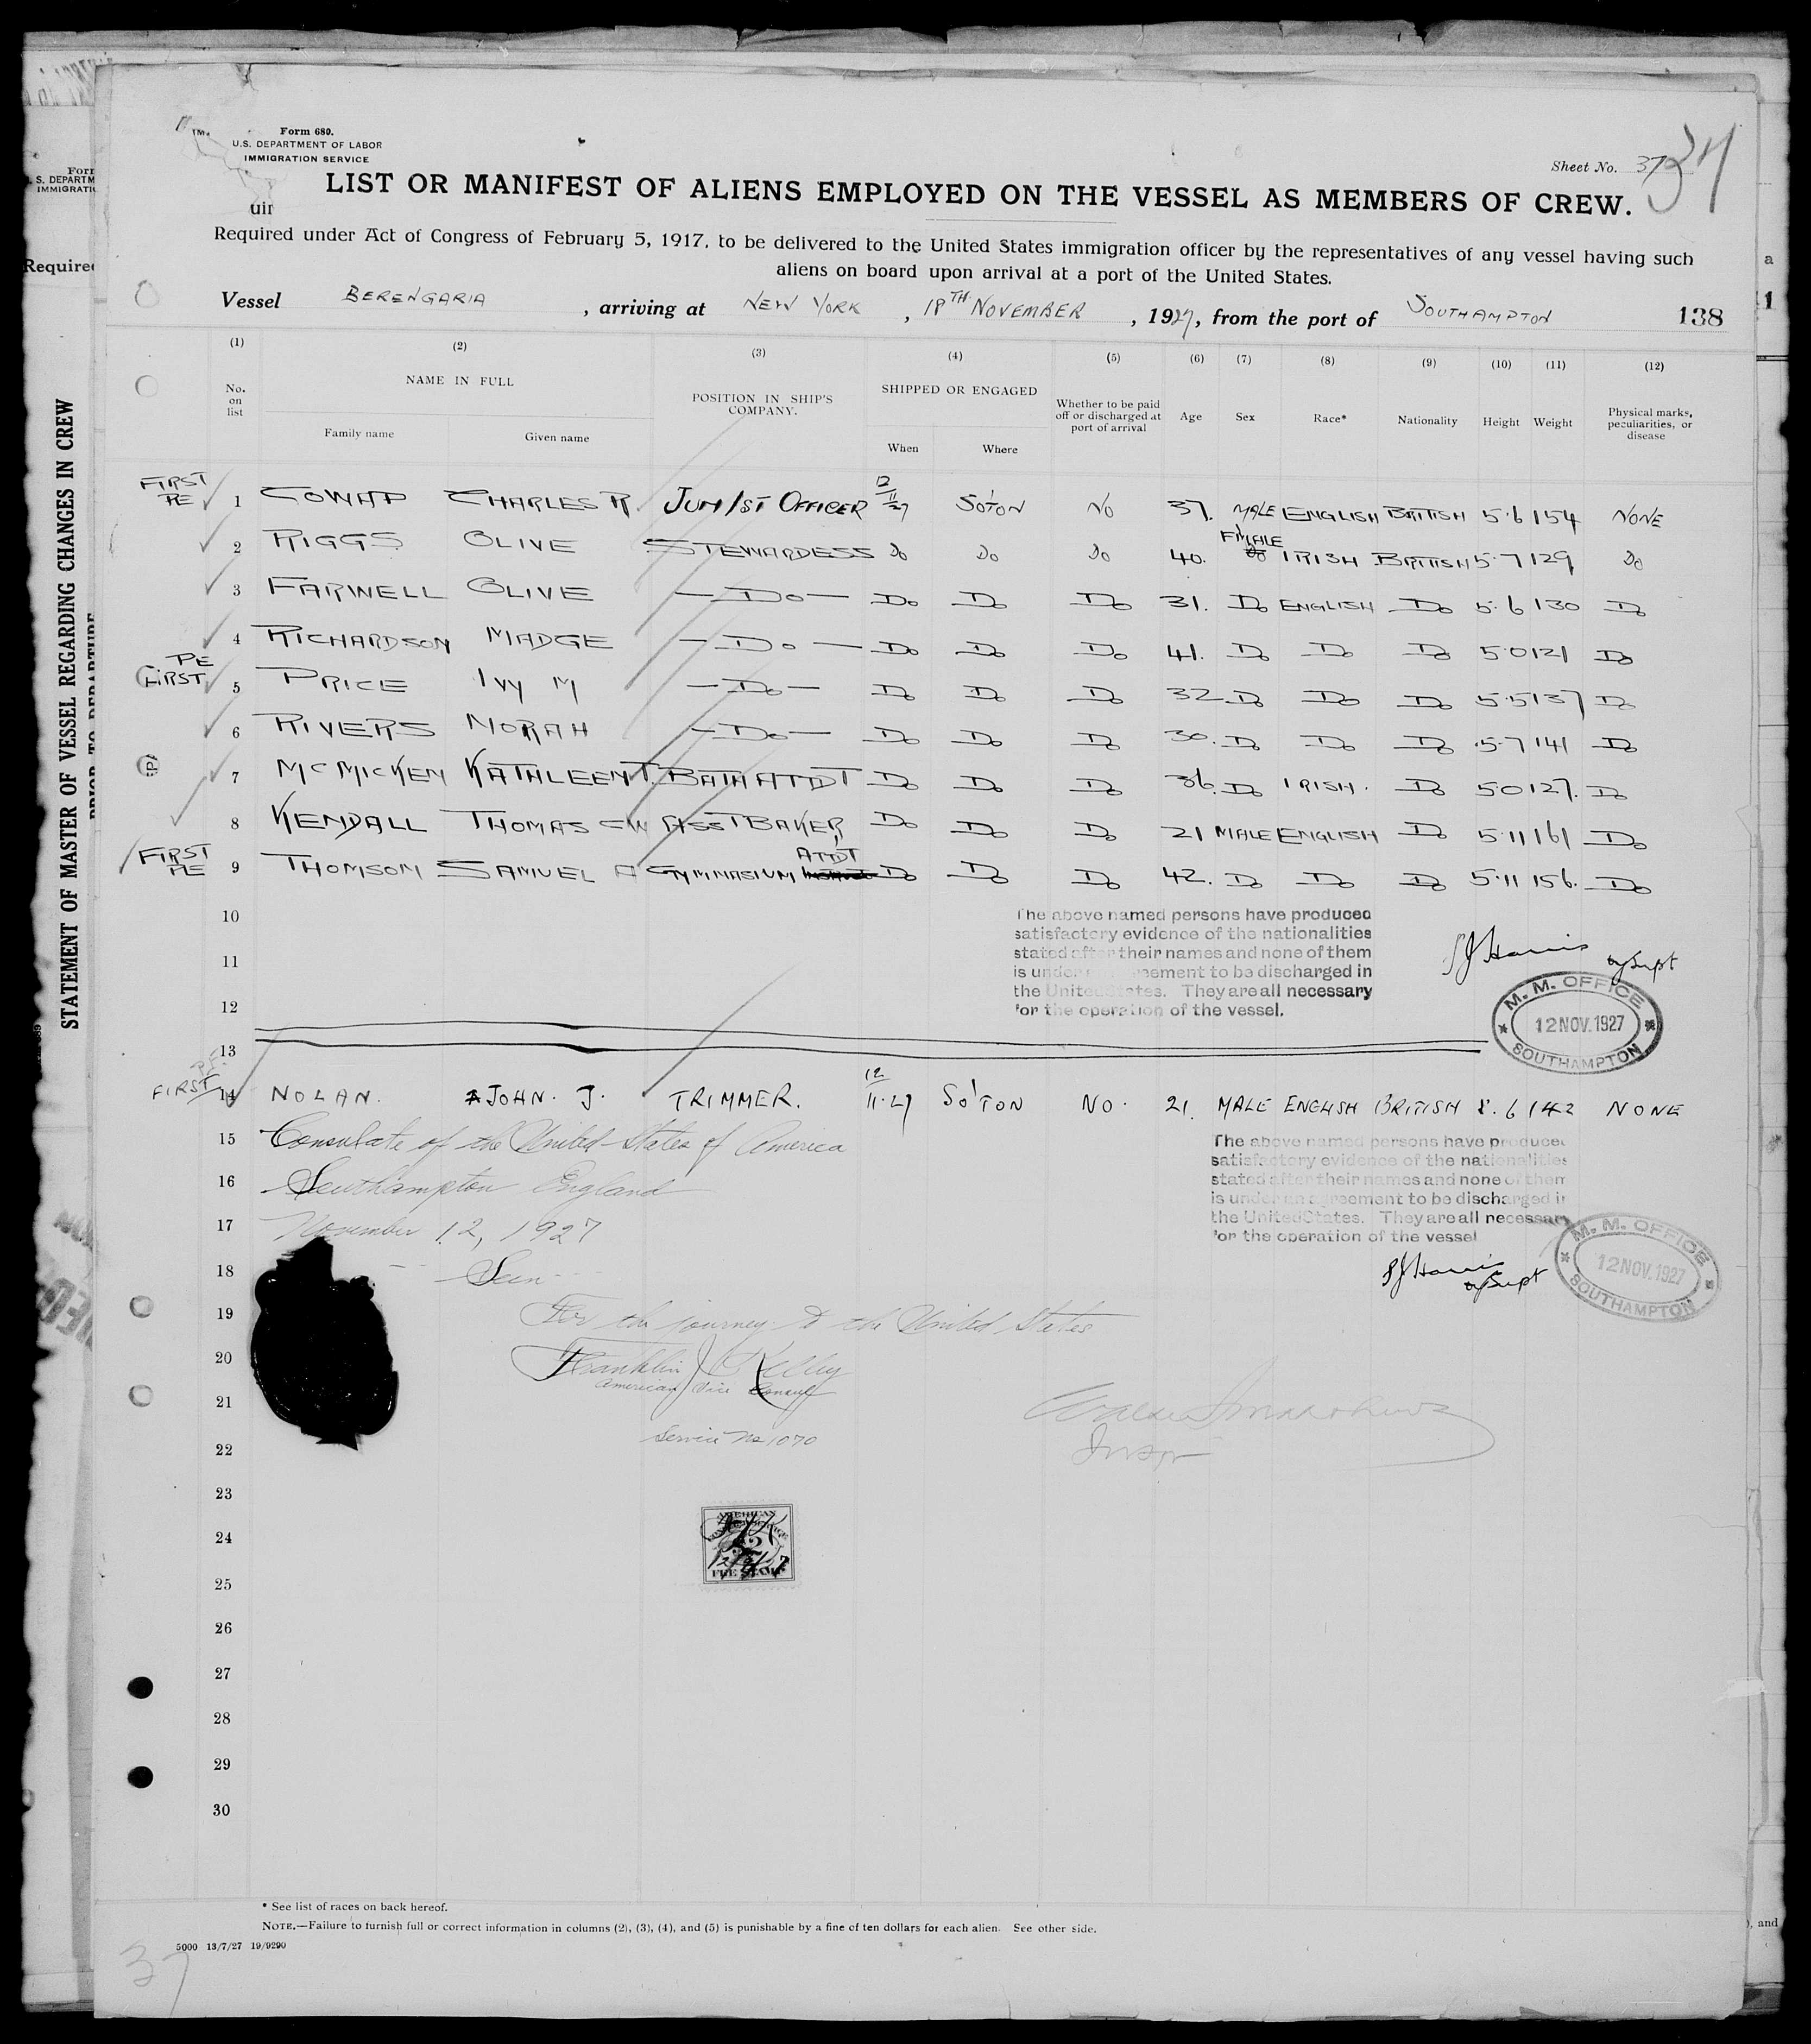 Form 680.
U.S. DEPARTMENT OF LABOR
IMMIGRATION SERVICE
Sheet No. 37
37
LIST OR MANIFEST OF ALIENS EMPLOYED ON THE VESSEL AS MEMBERS OF CREW.
Required under Act of Congress of February 5, 1917, to be delivered to the United States immigration officer by the representatives of any vessel having such
aliens on board upon arrival at a port of the United States.
Vessel BERENGARIA, arriving at NEW YORK, 18TH NOVEMBER, 1927, from the port of SOUTHAMPTON 138
(1) (2) (3) (4) (5) (6) (7) (8) (9) (10) (11) (12)
No. on list NAME IN FULL Family name Given name POSITION IN SHIP'S COMPANY. SHIPPED OR ENGAGED When Where Whether to be paid off or discharged at port of arrival Age Sex Race* Nationality Height Weight Physical marks, peculiarities, or disease
FIRST RE 1 COWAP CHARLES R JUN/1ST OFFICER 12/11/27 SO'TON NO 37. MALE ENGLISH BRITISH 5.6 154 NONE
2 RIGGS OLIVE STEWARDESS Do Do Do 40. FMALE IRISH BRITISH 5.7 129 Do
3 FARWELL OLIVE — Do — Do Do Do 31. Do ENGLISH Do 5.6 130 Do
4 RICHARDSON MADGE — Do — Do Do Do 41. Do Do Do 5.0 121 Do
RE FIRST 5 PRICE IVY M — Do — Do Do Do 32 Do Do Do 5.5 137 Do
6 RIVERS NORAH — Do — Do Do Do 30. Do Do Do 5.7 141 Do
7 McMICKEN KATHLEEN T. BATH ATTDT Do Do Do 36. Do IRISH. Do 5.0 127. Do
8 KENDALL THOMAS C W ASST BAKER Do Do Do 21 MALE ENGLISH Do 5.11 161 Do
FIRST RE 9 THOMSON SAMUEL A GYMNASIUM ATTDT Do Do Do 42. Do Do Do 5.11 156. Do
10
11
12
The above named persons have produced
satisfactory evidence of the nationalities
stated after their names and none of them
is under an agreement to be discharged in
the United States. They are all necessary
for the operation of the vessel.
SJ Harris
Dy Supt
M. M. OFFICE
12 NOV. 1927
SOUTHAMPTON
13
FIRST 14 NOLAN. JOHN. J. TRIMMER. 12/11.27 SO'TON NO. 21. MALE ENGLISH BRITISH 5.6 142 NONE
15 Consulate of the United States of America
16 Southampton England
17 November 12, 1927
The above named persons have produced
satisfactory evidence of the nationalities
stated after their names and none of them
is under an agreement to be discharged in
the United States. They are all necessary
for the operation of the vessel
SJ Harris
Dy Supt
M. M. OFFICE
12 NOV. 1927
SOUTHAMPTON
18 Seen
19 For the journey to the United States
20 Franklin J Kelley
American Vice Consul
21
Service No 1070
22
23
24
FEE STAMP
25
26
27
28
29
30
* See list of races on back hereof.
NOTE.—Failure to furnish full or correct information in columns (2), (3), (4), and (5) is punishable by a fine of ten dollars for each alien. See other side.
5000 13/7/27 19/9290
37
STATEMENT OF MASTER OF VESSEL REGARDING CHANGES IN CREW
PRIOR TO DEPARTURE